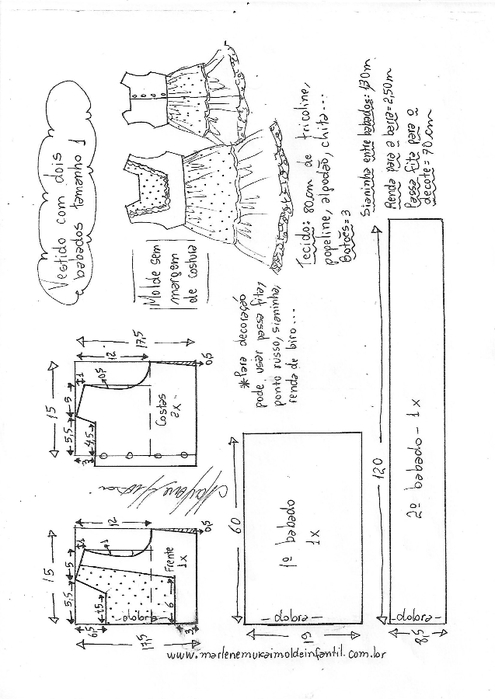 Vestido com dois
e babados tamanho 1
Molde sem
margem
de costura
Tecido: 80cm de tricoline,
popeline, algodão, chita...
Botões = 3
Sianinha entre babados: 1,30m
Renda para a barra = 2,50m
Passa fita para o
decote = 70cm
*Para decoração
pode usar passa fita,
ponto russo, sianinha,
renda de biro...
15
5,5
5
1
12
17,5
0,5
4,5
3
0,5
Costas
2x
15
5,5
5
1
12
17,5
1
6,5
6
3
0,5
Frente
1x
dobra
60
19
1º babado
1x
dobra
120
8,5
2º babado - 1x
dobra
www.marlenemukaimoldeinfantil.com.br